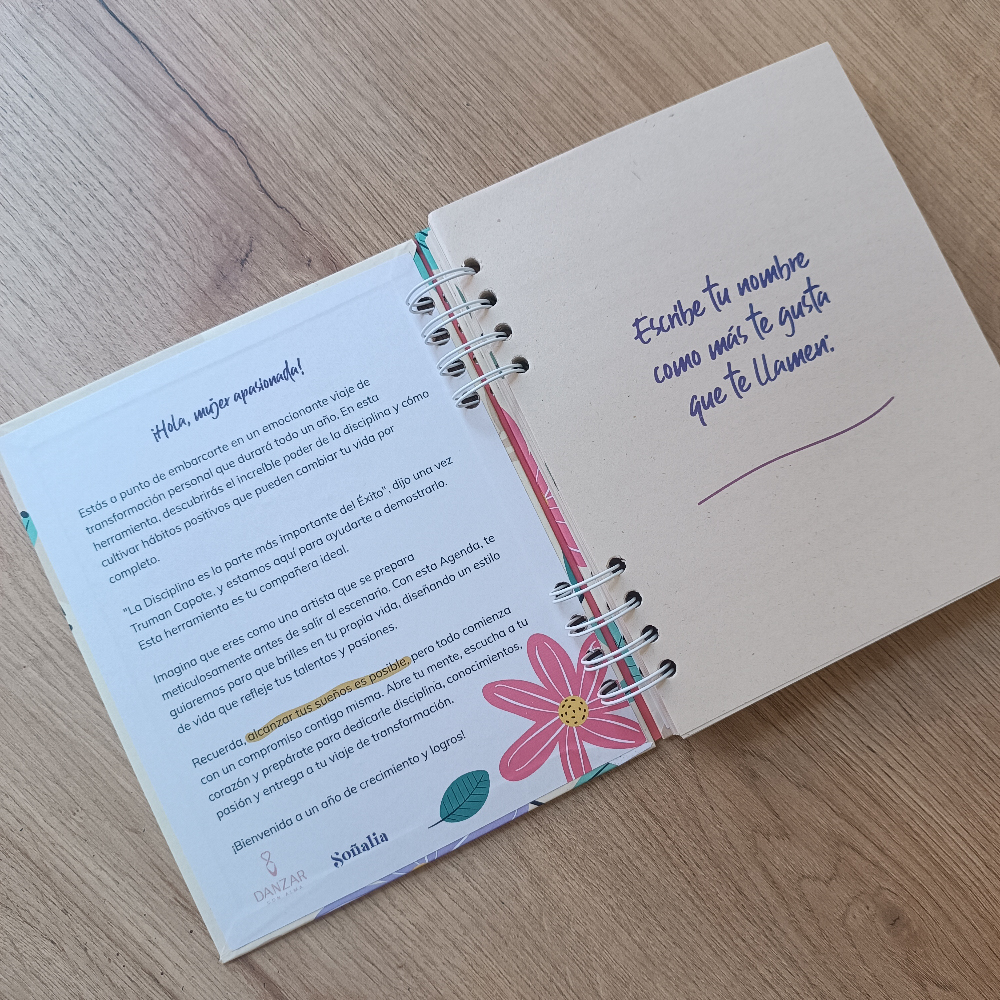 ¡Hola, mujer apasionada!
Estás a punto de embarcarte en un emocionante viaje de
transformación personal que durará todo un año. En esta
herramienta, descubrirás el increíble poder de la disciplina y cómo
cultivar hábitos positivos que pueden cambiar tu vida por
completo.
"La Disciplina es la parte más importante del Éxito", dijo una vez
Truman Capote, y estamos aquí para ayudarte a demostrarlo.
Esta herramienta es tu compañera ideal.
Imagina que eres como una artista que se prepara
meticulosamente antes de salir al escenario. Con esta Agenda, te
guiaremos para que brilles en tu propia vida, diseñando un estilo
de vida que refleje tus talentos y pasiones.
Recuerda, alcanzar tus sueños es posible, pero todo comienza
con un compromiso contigo misma. Abre tu mente, escucha a tu
corazón y prepárate para dedicarle disciplina, conocimientos,
pasión y entrega a tu viaje de transformación.
¡Bienvenida a un año de crecimiento y logros!
DANZAR
CON ALMA
Soñalia
Escribe tu nombre
como más te gusta
que te llamen: